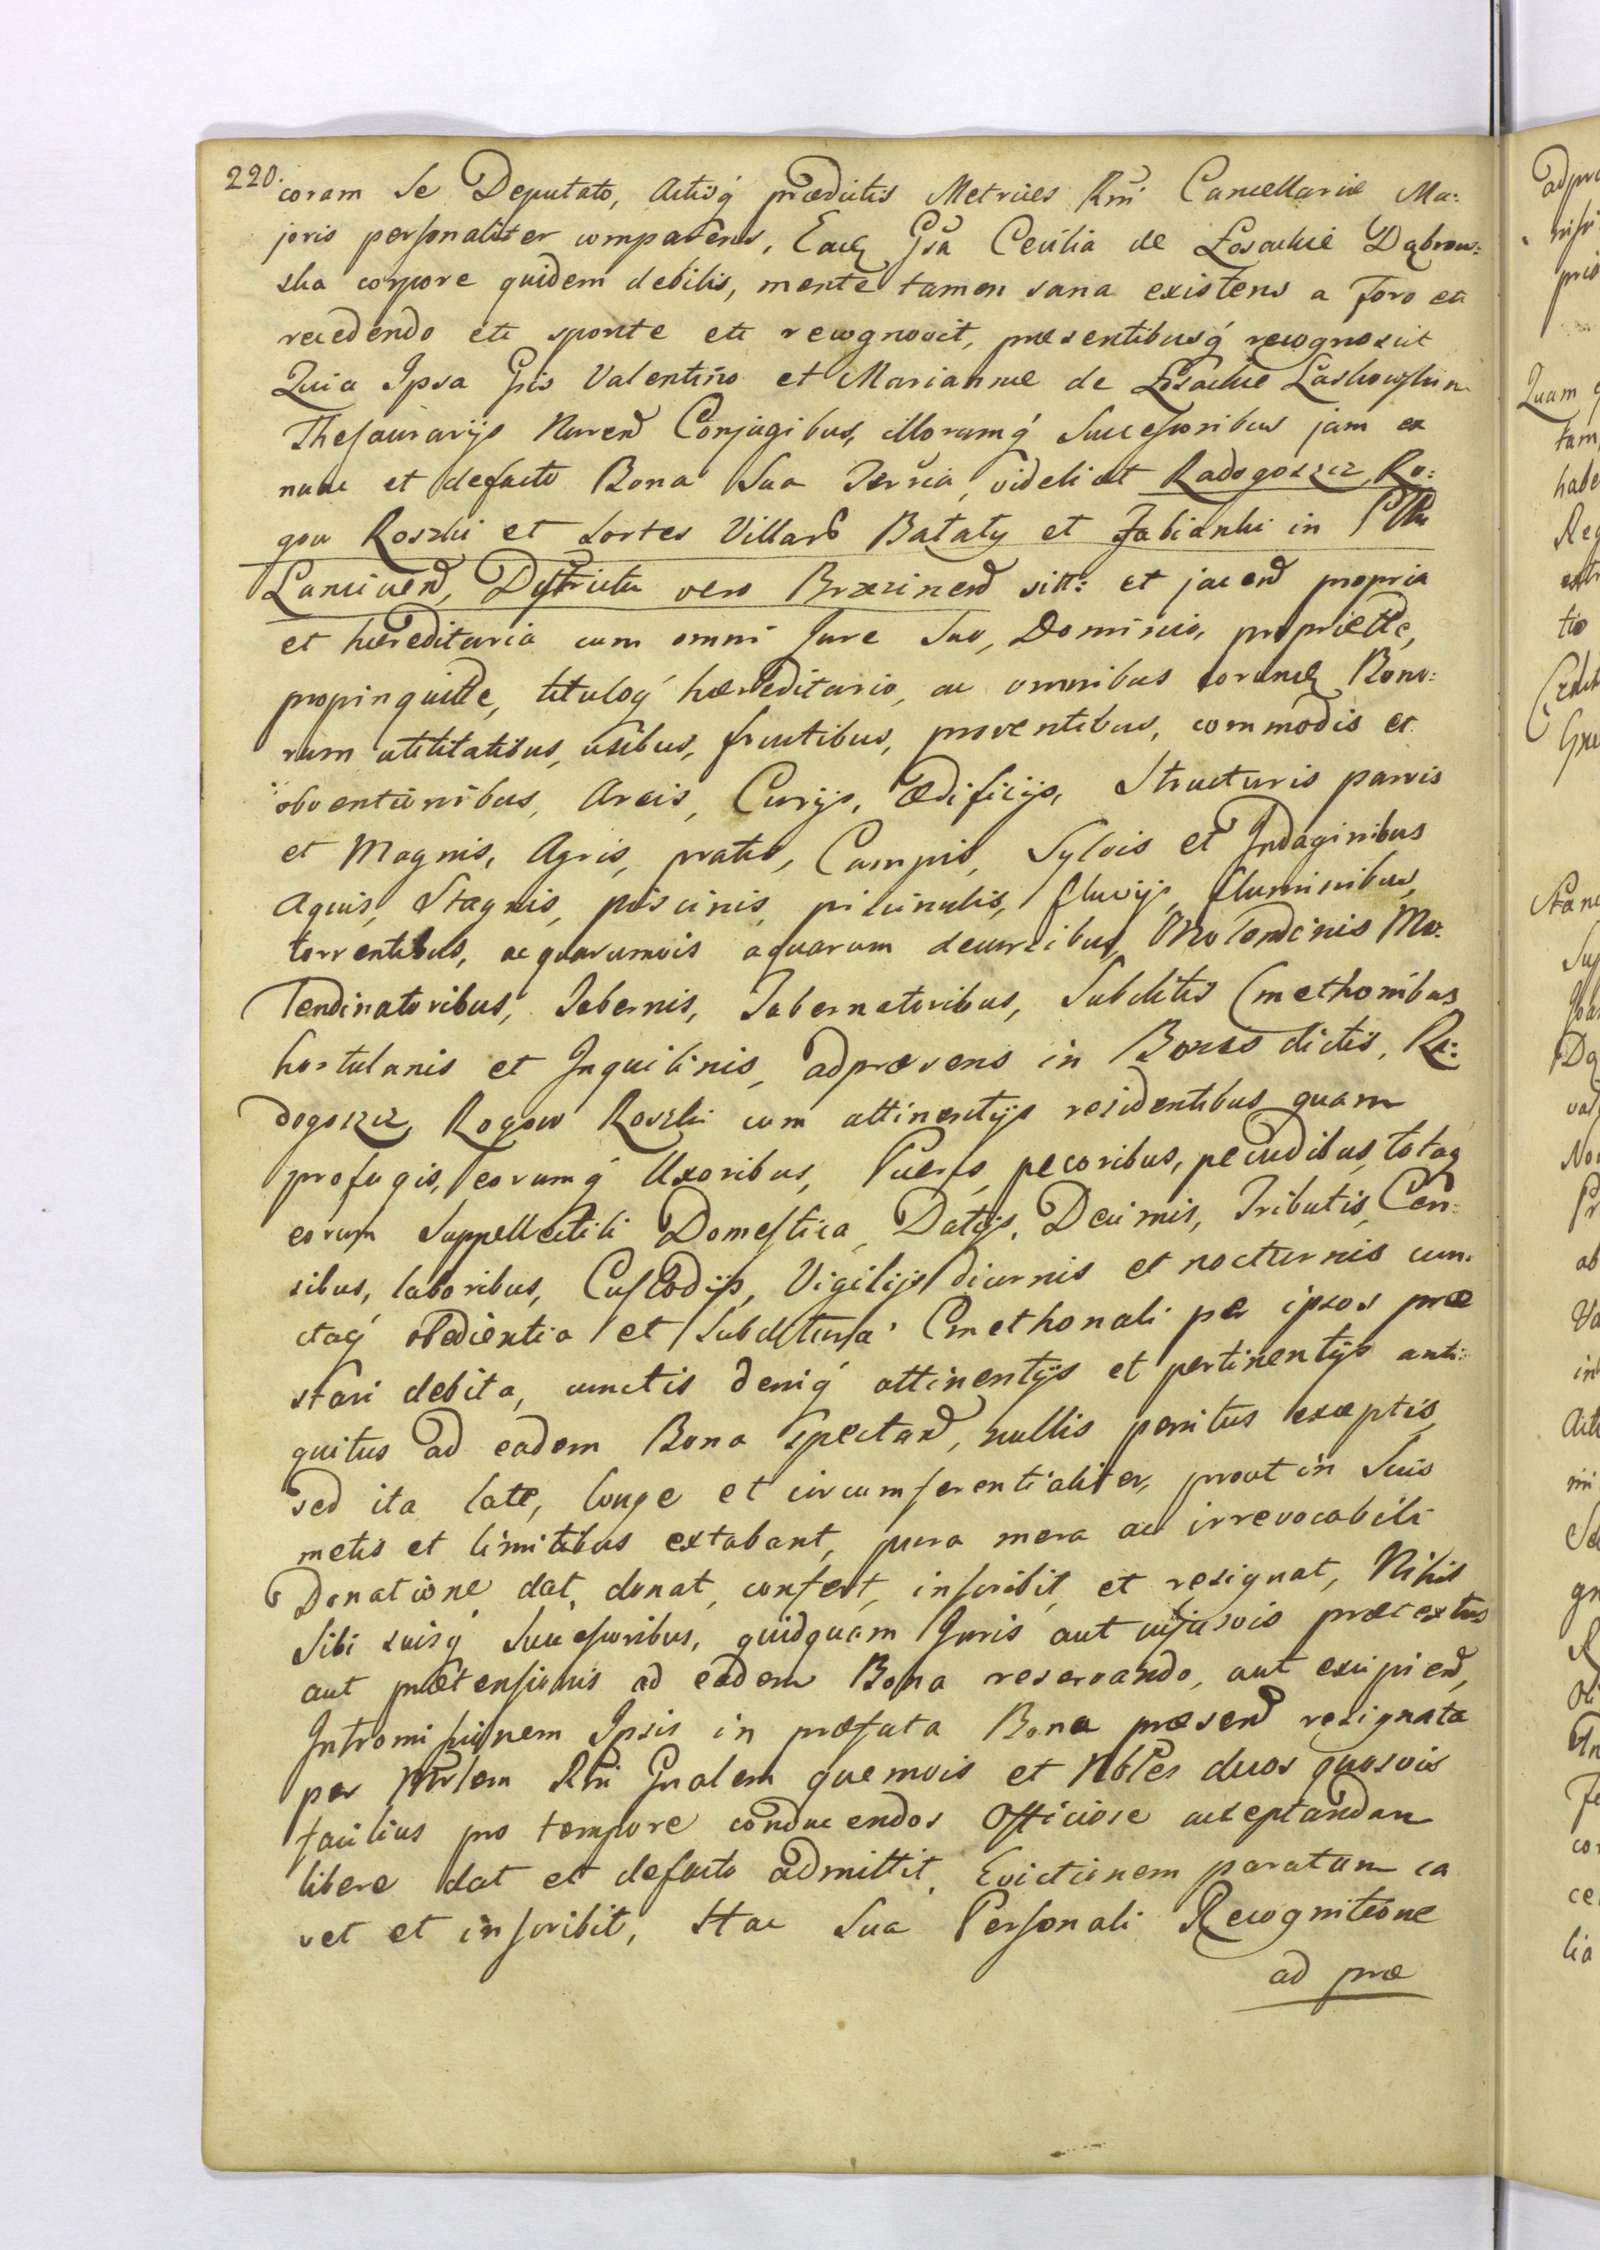 220. coram se Deputato, Actisq́ prædictis Metrices Rñi Cancellariæ Ma:
joris personaliter comparens, Eadq Gsa Cecilia de Łosackie Dąbrow:
ska corpore quidem debilis, mente tamen sana existens a Foro etc
recedendo etc sponte etc recognovit, præsentibusq́ recognoscit
Quia Ipsa Gsis Valentino et Mariannæ de Łosackie Laskowskim
Thesaurarijs Nurend Conjugibus, illorumq́ Successoribus jam ex
nunc et defacto Bona Sua Terria, videlicet Radogoszcz, Ro:
gow Roszki et Sortes Villard Bataty et Fabianki in Pttu
Lancicend, Districtu vero Brzezinend sitt: et jacend propria
et hæreditaria cum omni Jure Suo, Dominio, propriette,
propinquitte, tituloq́ hæreditario, ac omnibus eorundq Bono:
rum utilitatibus, usibus, fructibus, proventibus, commodis et
obventionibus, Areis, Curijs, Ædificijs, Structuris parvis
et Magnis, Agris, pratis, Campis, Sylvis et Indaginibus
Aquis, Stagnis, piscinis, piscinulis, fluvijs, fluminibus,
torrentibus, ac quarumvis aquarum decursibus, Molendinis Mo:
lendinatoribus, Tabernis, Tabernatoribus, Subditis Cmethonibus
hortulanis et Inquilinis, adpræsens in Bonis dictis, Ra:
dogoszcz, Rogow Roszki cum attinentijs residentibus quam
profugis, eorumq́ Uxoribus, Pueris, pecoribus, pecudibus, totaq
eorum Suppellectili Domestica, Datijs, Decimis, Tributis, Cen:
sibus, laboribus, Custodijs, Vigilijs diurnis et nocturnis cun:
ctaq́ obedientia et Subditura Cmethonali per ipsos præ
stari debita, cunctis deniq́ attinentijs et pertinentijs anti:
quitus ad eadem Bona spectand, nullis penitus exceptis,
sed ita late, longe et circumferentialiter, prout in Suis
metis et limitibus extabant, pura mera ac irrevocabili
Donatione dat, donat, confert, inscribit, et resignat, Nihil
Sibi suisq́ Successoribus, quidquam Juris aut cujusvis prætextus
aut prætensionis ad eadem Bona reservando, aut excipiend,
Intromissionem Ipsis in præfata Bona præsend resignata
per Mrlem Rñi Gnalem quemvis et Nobles duos quosvis
facilius pro tempore conducendos Officiose acceptandam
libere dat et defacto admittit, Evictionem paratam ca
vet et inscribit, Hac Sua Personali Recognitione
ad præ